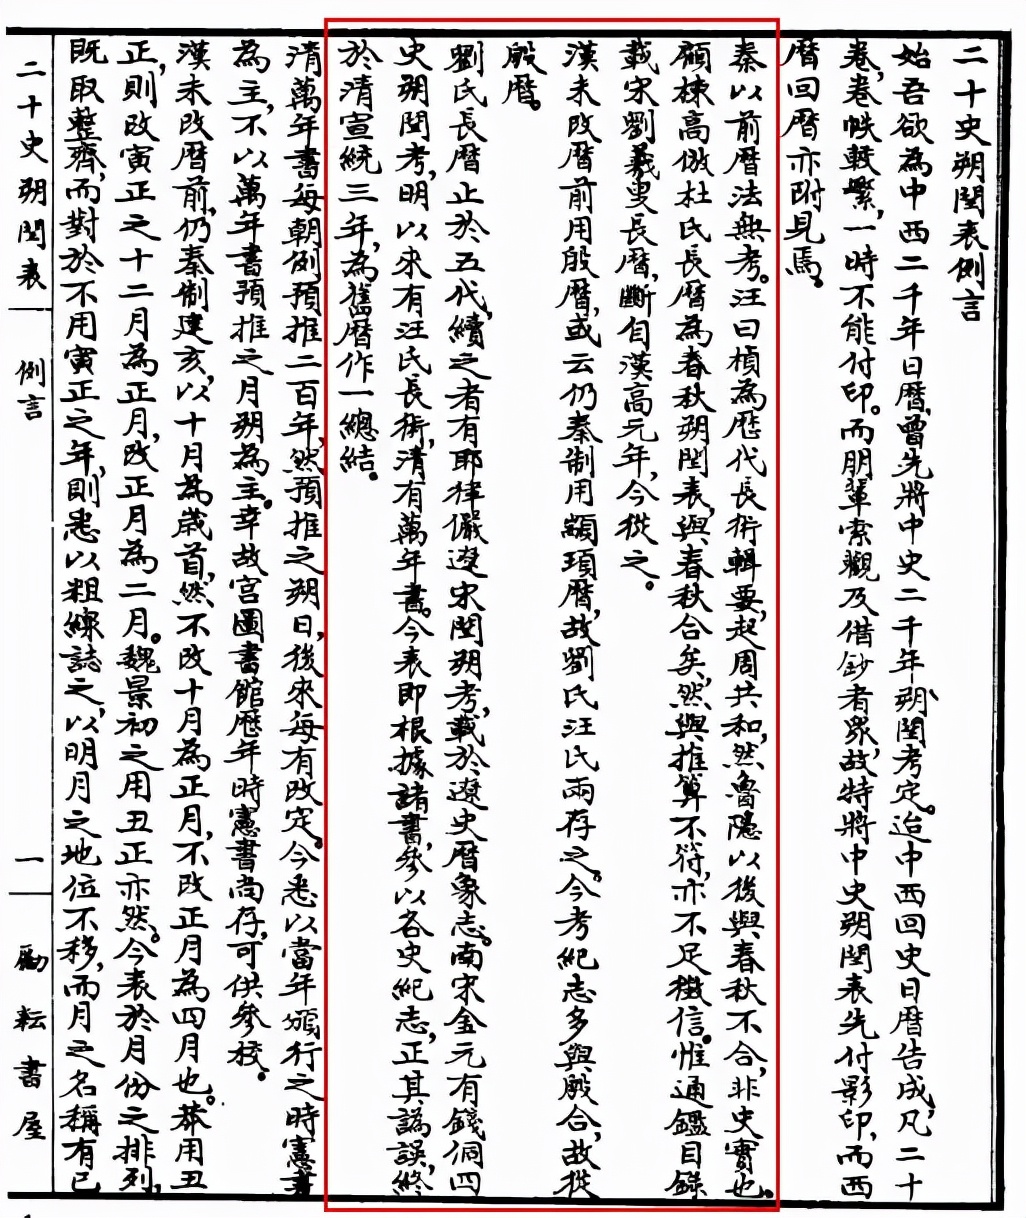 二十史朔閏表例言
始吾欲為中西二千年日曆，曾先將中史二千年朔閏考定。迨中西回史日曆告成，凡二十
卷，卷帙輕繁，一時不能付印。而朋輩索觀及借鈔者眾，故特將中史朔閏表先付影印，而西
曆回曆亦附見焉。
秦以前曆法無考。汪曰楨為歷代長術輯要，起周共和，然魯隱以後與春秋不合，非史實也。
顧棟高倣杜氏長曆為春秋朔閏表，與春秋合矣，然與推算不符，亦不足徵信。惟通鑑目錄
載宋劉羲叟長曆，斷自漢高元年，今從之。
漢未改曆前用殷曆，或云仍秦制用顓頊曆，故劉氏汪氏兩存之。今考紀志多與殷合，故從
殷曆。
劉氏長曆止於五代，續之者有耶律儼遼宋閏朔考，載於遼史曆象志。南宋金元有錢侗四
史朔閏考，明以來有汪氏長術，清有萬年書。今表即根據諸書，參以各史紀志，正其譌誤，終
於清宣統三年，為舊曆作一總結。
清萬年書每朝例預推二百年，然預推之朔日，後來每有改定。今悉以當年頒行之時憲書
為主，不以萬年書預推之月朔為主。幸故宮圖書館歷年時憲書尚存，可供參校。
漢未改曆前，仍秦制建亥，以十月為歲首，然不改十月為正月，不改正月為四月也。莽用丑
正，則改寅正之十二月為正月，改正月為二月。魏景初之用丑正亦然。今表於月份之排列，
既取整齊，而對於不用寅正之年，則悉以粗線誌之，以明月之地位不移，而月之名稱有已
二十史朔閏表
例言
一
勵耘書屋